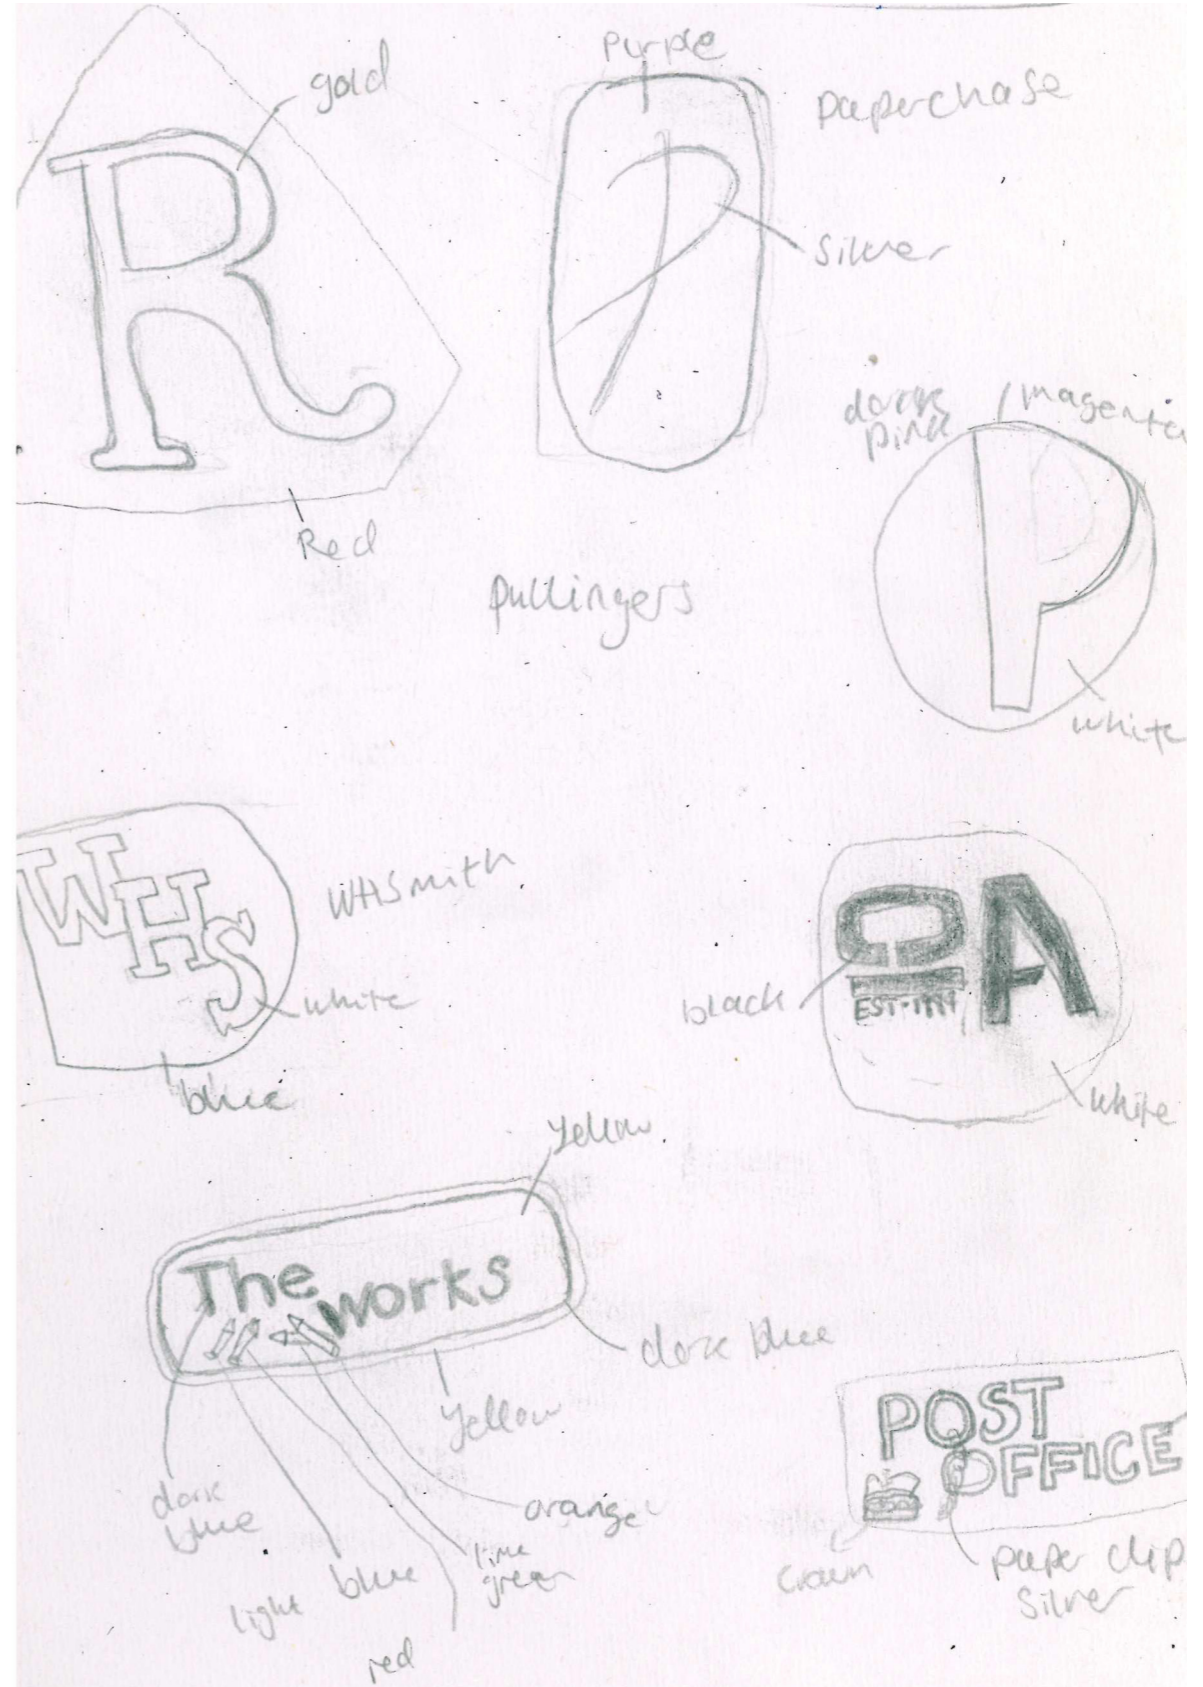 gold
R
Red
Purple
Paperchase
P
Silver
Pullingers
dark
pink
/magenta
P
white
WHS
WHSmith
white
blue
OA
black
white
yellow
The works
dark blue
yellow
dark
blue
light blue
red
lime
green
orange
POST
OFFICE
crown
paper clip
Silver